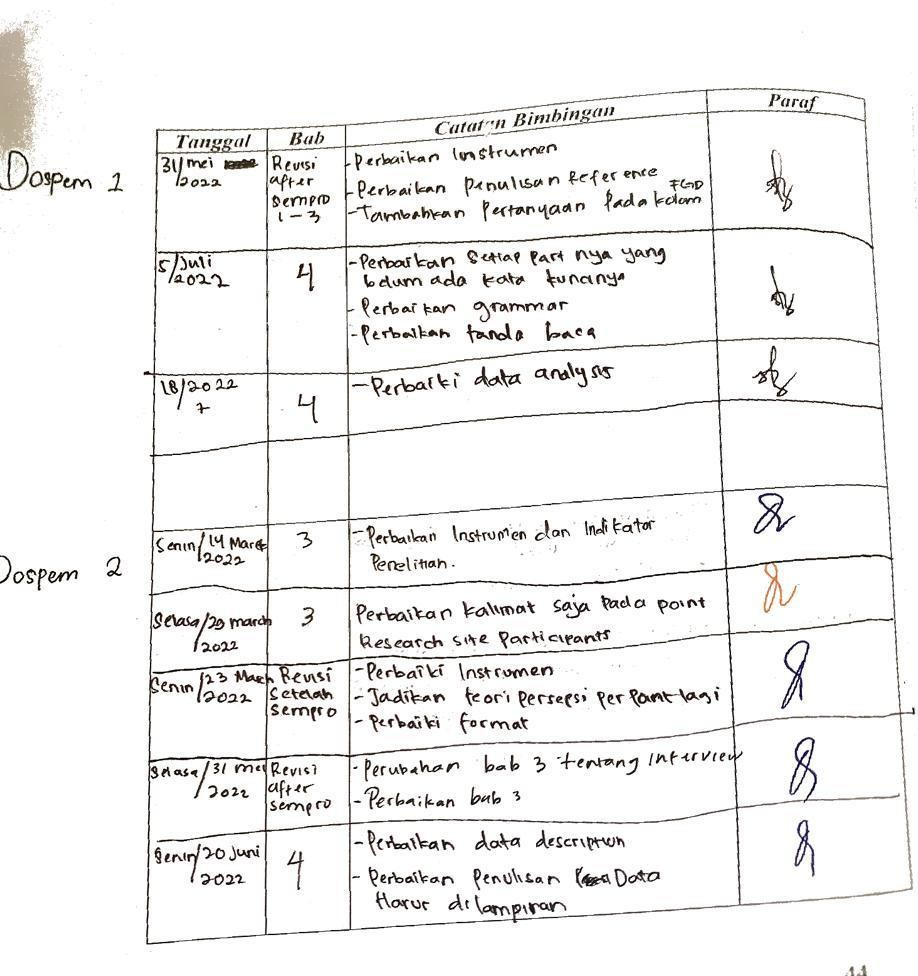 Tanggal Bab Catatan Bimbingan Paraf
Dospem 1
31/mei
2022
Revisi
after
sempro
1-3
-Perbaikan Instrumen
-Perbaikan Penulisan Reference
-Tambahkan Pertanyaan Pada kolom FGD
5/Juli
2022
4
-Perbaikan Setiap Part nya yang
belum ada kata kuncinya
-Perbaikan grammar
-Perbaikan tanda baca
18/2022
7
4
-Perbaiki data analysis
Dospem 2
Senin/14 Maret
2022
3
-Perbaikan Instrumen dan Indikator
Penelitian.
Selasa/29 march
2022
3
Perbaikan kalimat saja Pada point
Research site Participants
Senin/23 March
2022
Revisi
Setelah
sempro
-Perbaiki Instrumen
-Jadikan teori Persepsi per Point lagi
-Perbaiki format
Selasa/31 mei
2022
Revisi
after
sempro
-Perubahan bab 3 tentang Interview
-Perbaikan bab 3
Senin/20 Juni
2022
4
-Perbaikan data description
-Perbaikan Penulisan Data
Harus dilampiran
44